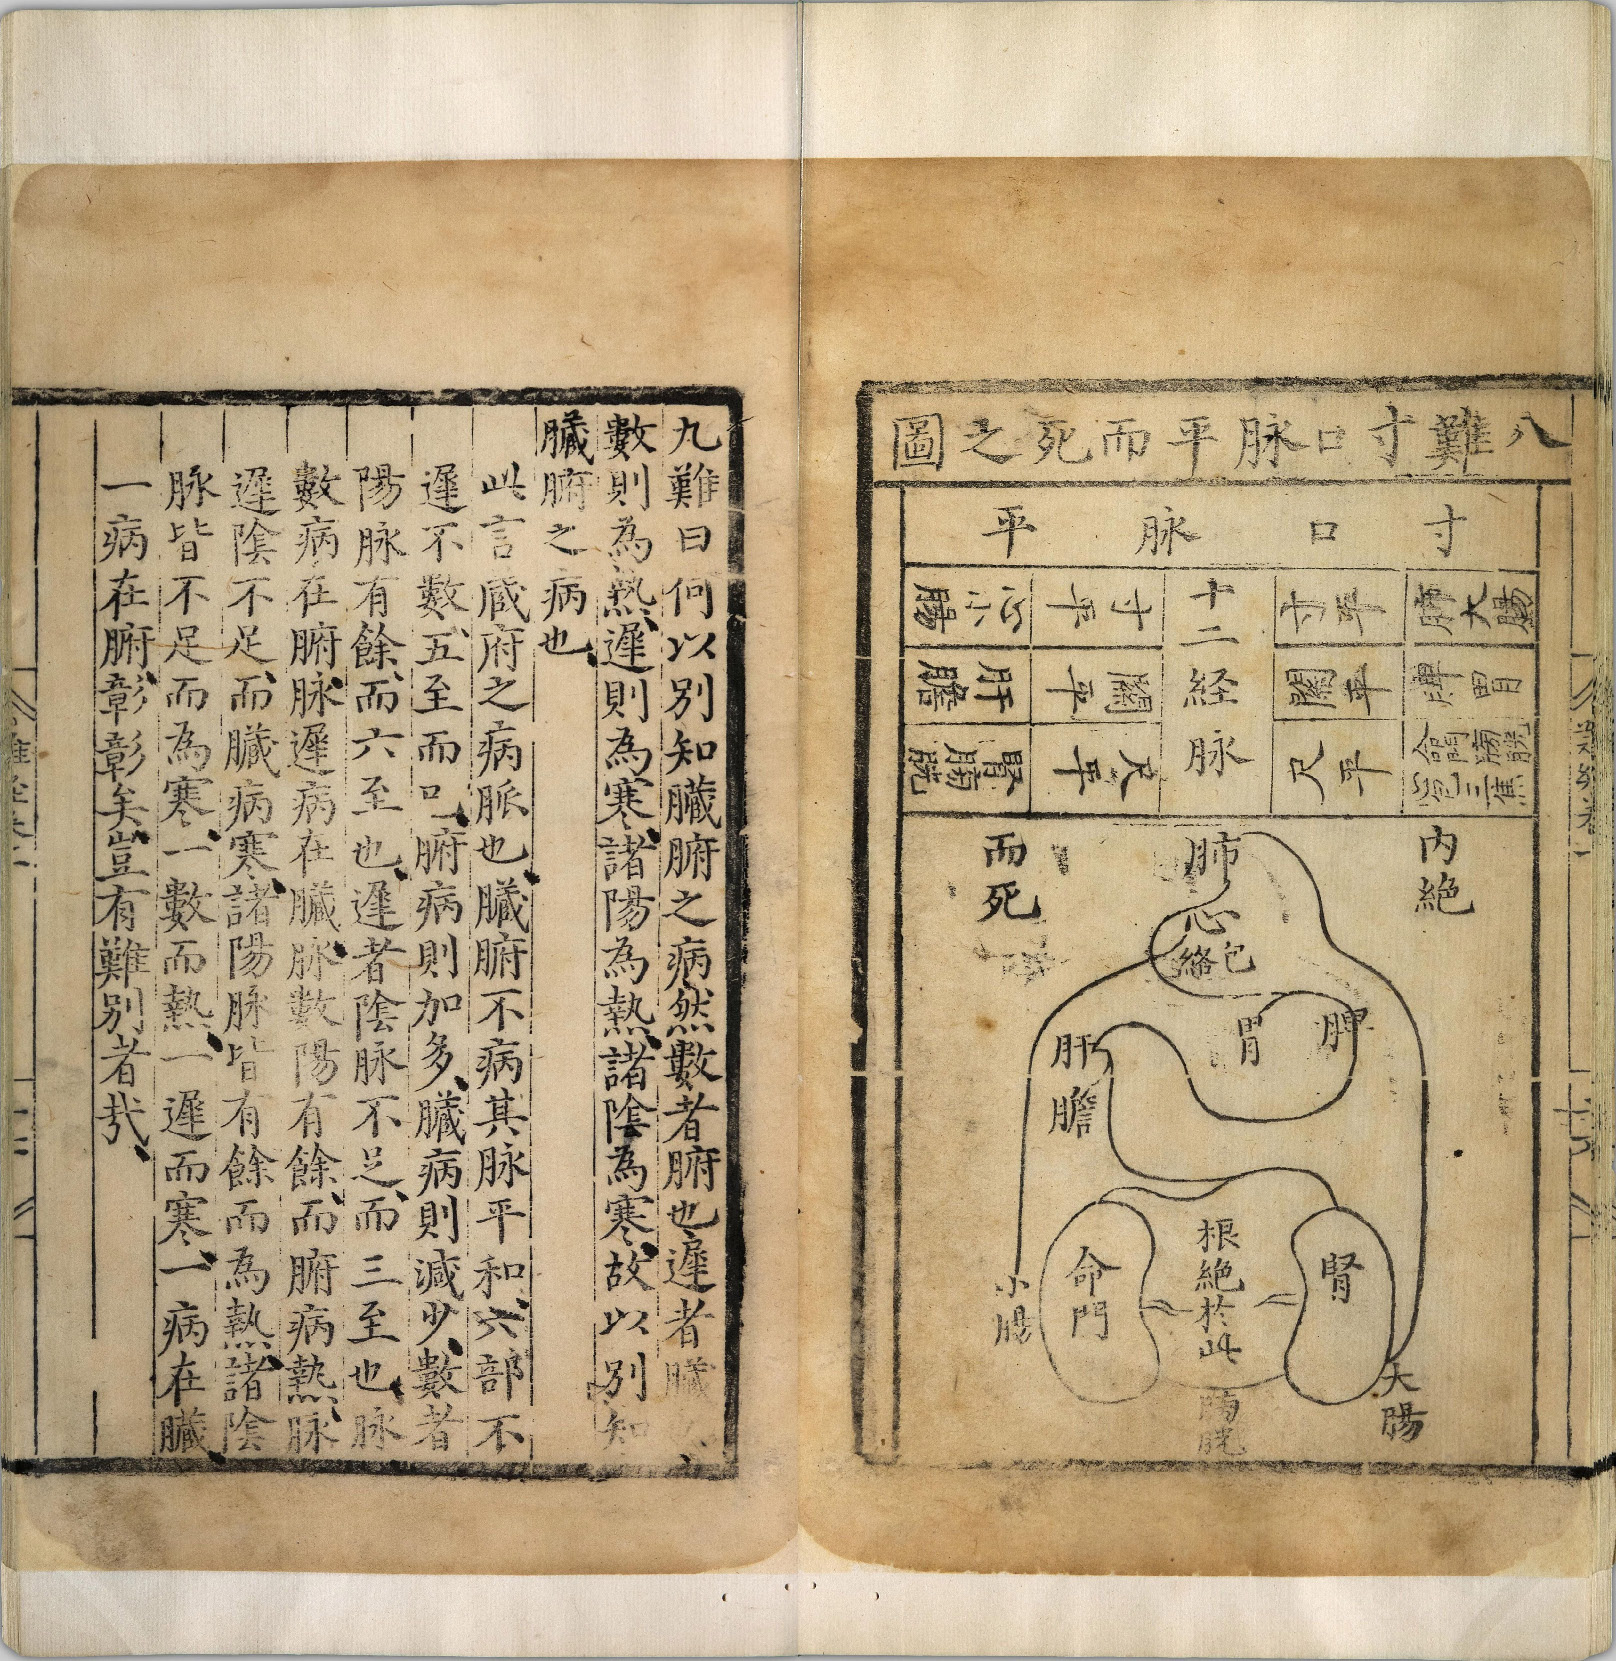 八難寸口脉平而死之圖
寸口脉平
肺大腸
脾胃
命門心包三焦膀胱
寸平
關平
尺平
十二経脉
寸平
關平
尺平
心小腸
肝膽
腎膀胱
内絶
而死
肺
心
包絡
脾
胃
肝
膽
腎
命門
根絶於此
小腸
大腸
膀胱
九難曰何以别知臟腑之病然數者腑也遲者臟
數則為熱遲則為寒諸陽為熱諸陰為寒故以别知
臟腑之病也
此言臓府之病脈也臟腑不病其脉平和六部不
遲不數五至而已腑病則加多臟病則減少數者
陽脉有餘而六至也遲者陰脉不足而三至也脉
數病在腑脉遲病在臟脉數陽有餘而腑病熱脉
遲陰不足而臟病寒諸陽脉皆有餘而為熱諸陰
脉皆不足而為寒一數而熱一遲而寒一病在臟
一病在腑彰彰矣豈有難别者㢤